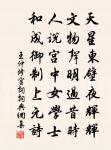 天星東壁夜輝輝
文物彬彬過昔時
人說宮中女學士
和成御制上元詩
王仲修宮詞詩典網集